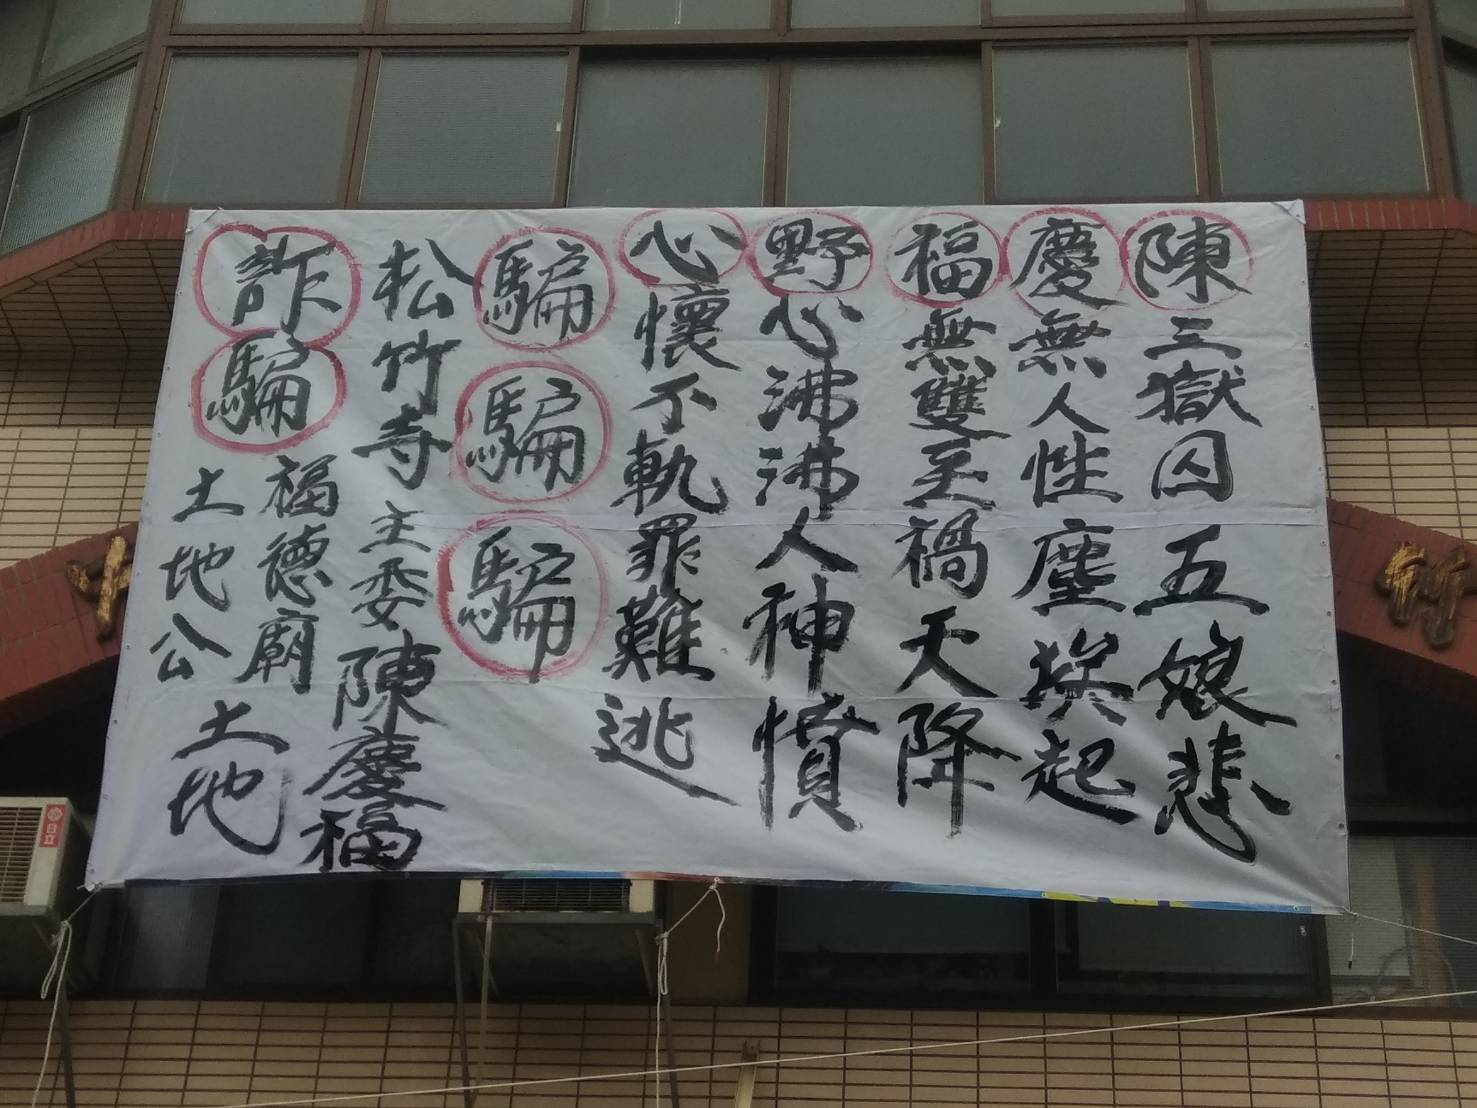 陳三獄囚五娘悲
慶無人性塵埃起
福無雙至禍天降
野心沸沸人神憤
心懷不軌罪難逃
騙騙騙
松竹寺主委陳慶福
詐騙
福德廟
土地公
土地
竹
日立